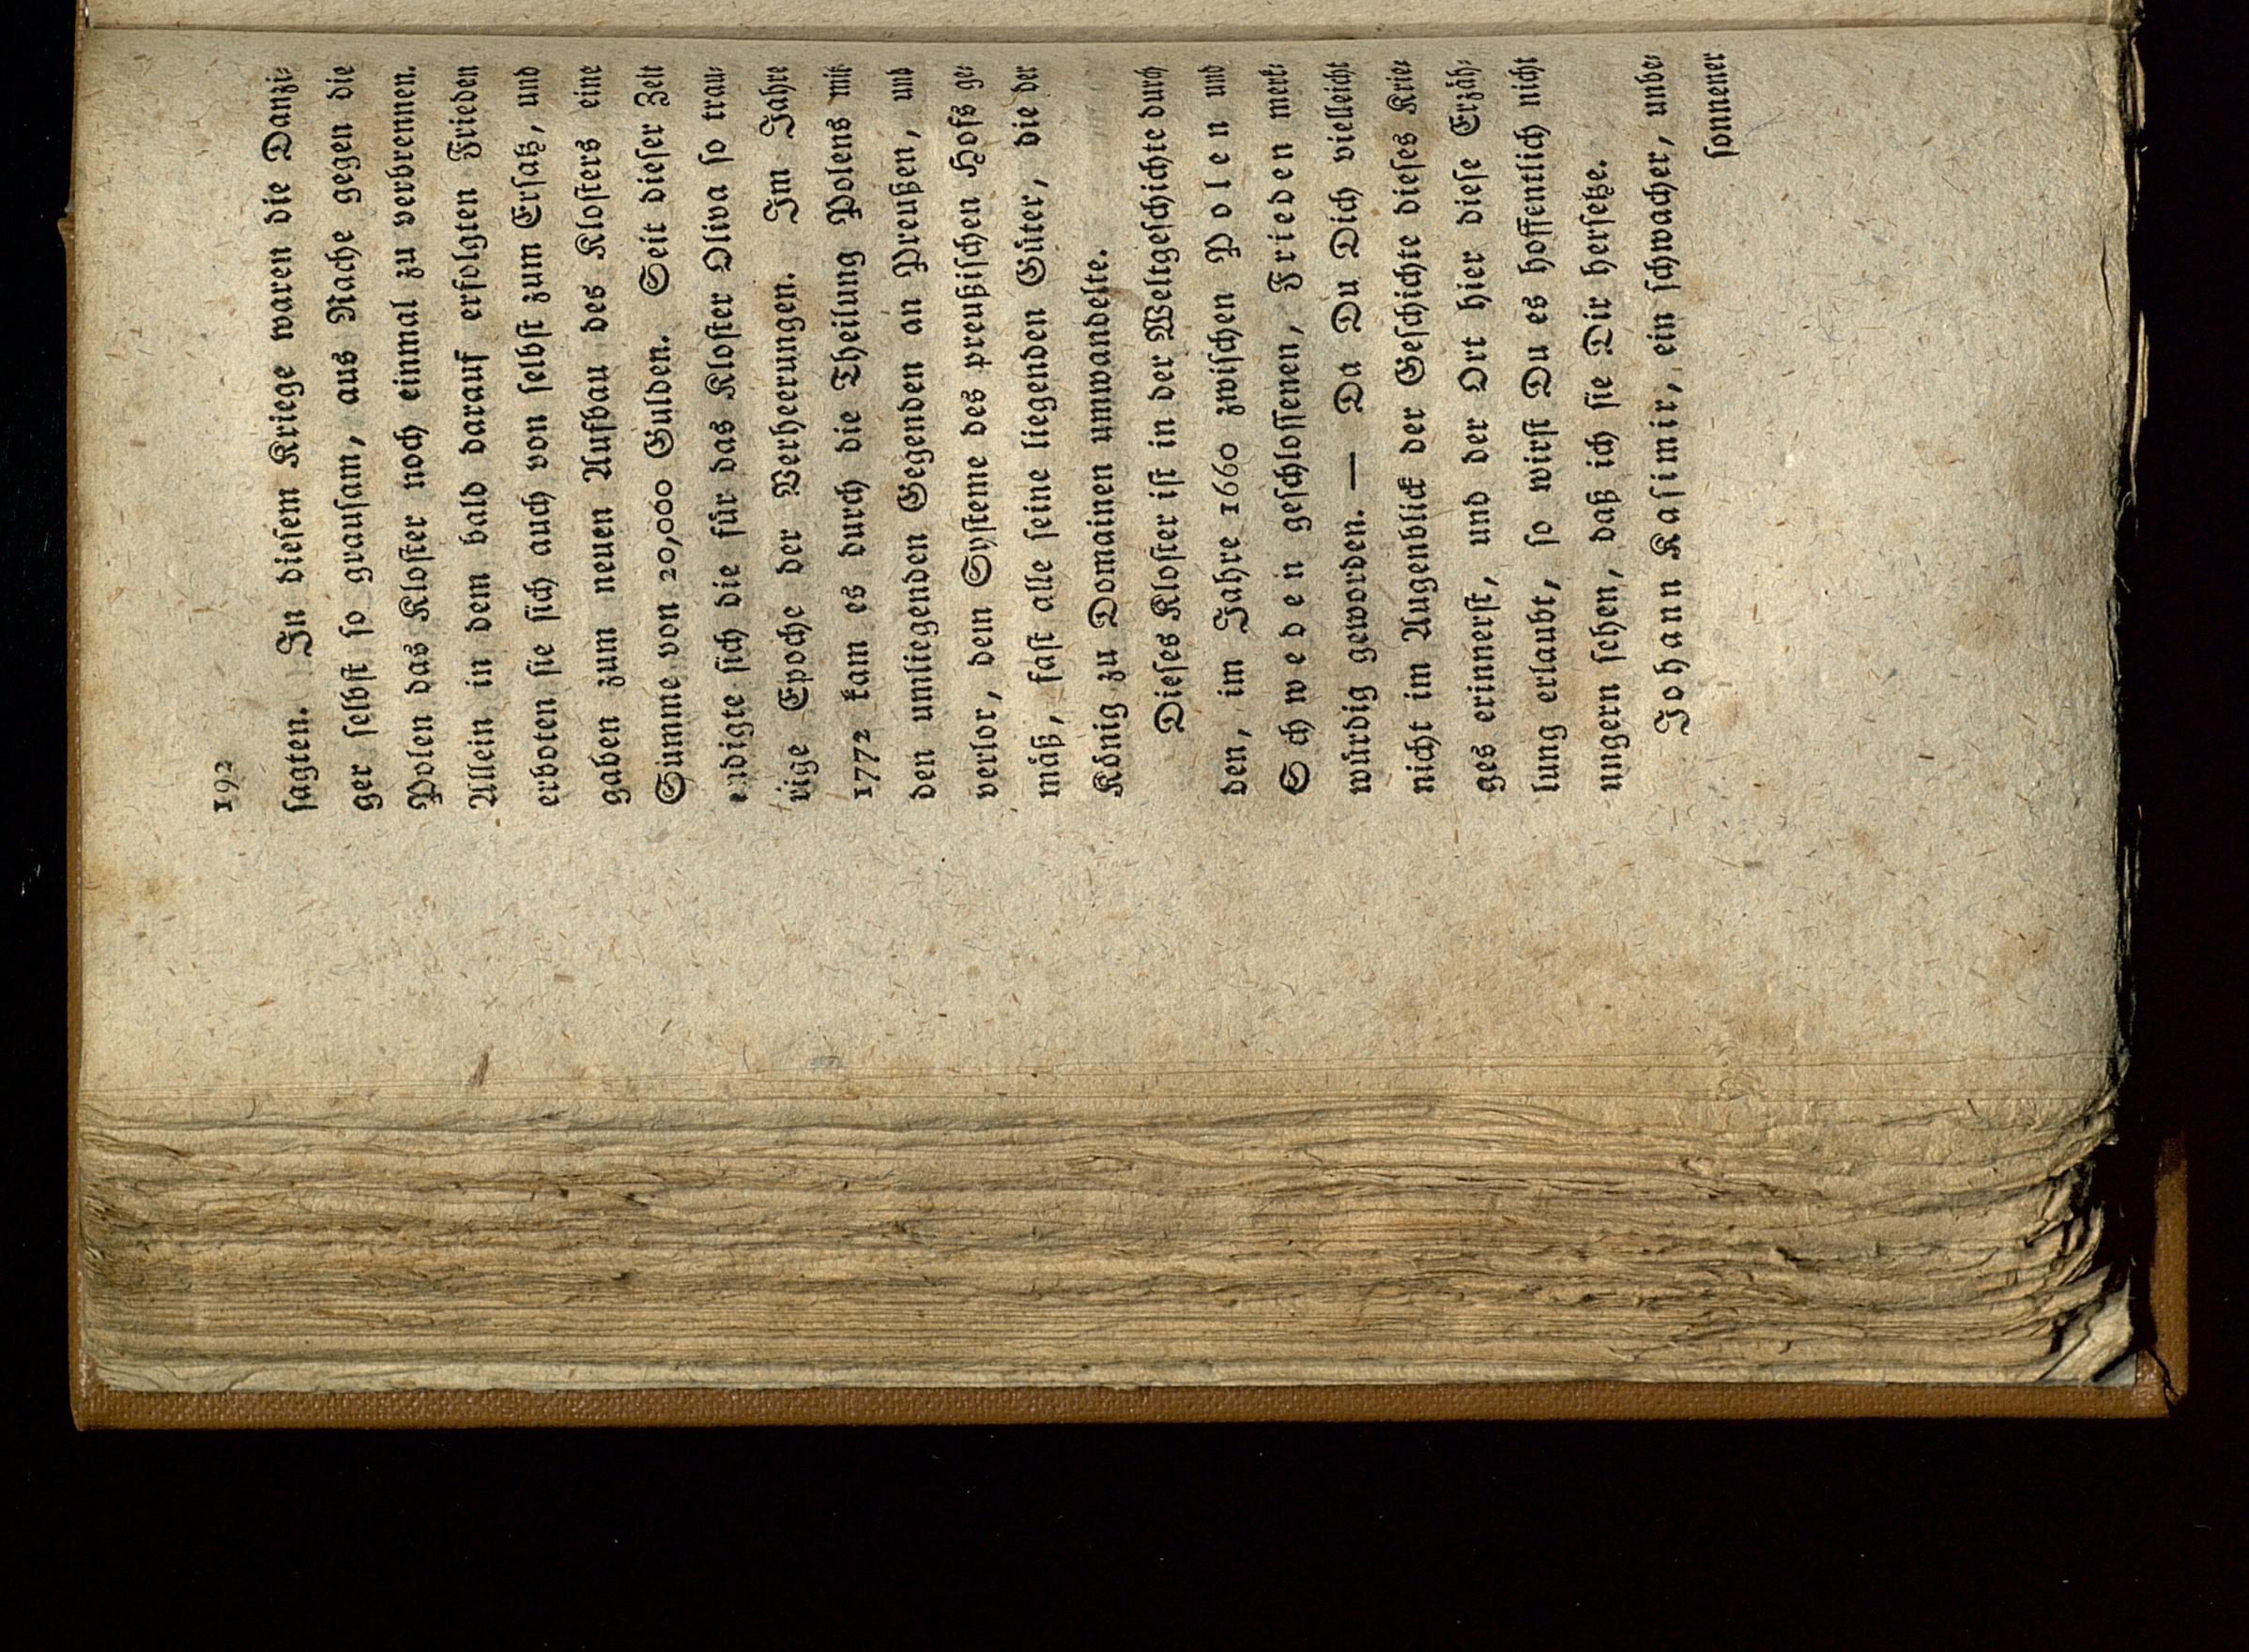 192
ſagten. In dieſem Kriege waren die Danzi⸗
ger ſelbſt ſo grauſam, aus Rache gegen die
Polen das Kloſter noch einmal zu verbrennen.
Allein in dem bald darauf erfolgten Frieden
erboten ſie ſich auch von ſelbſt zum Erſatz, und
gaben zum neuen Aufbau des Kloſters eine
Summe von 20,000 Gulden. Seit dieſer Zeit
endigte ſich die fuͤr das Kloſter Oliva ſo trau⸗
rige Epoche der Verheerungen. Im Jahre
1772 kam es durch die Theilung Polens mit
den umliegenden Gegenden an Preußen, und
verlor, dem Syſteme des preußiſchen Hofs ge⸗
maͤß, faſt alle ſeine liegenden Guͤter, die der
Koͤnig zu Domainen umwandelte.
Dieſes Kloſter iſt in der Weltgeſchichte durch
den, im Jahre 1660 zwiſchen Polen und
Schweden geſchloſſenen, Frieden merk⸗
wuͤrdig geworden. — Da Du Dich vielleicht
nicht im Augenblick der Geſchichte dieſes Krie⸗
ges erinnerſt, und der Ort hier dieſe Erzaͤh⸗
lung erlaubt, ſo wirſt Du es hoffentlich nicht
ungern ſehen, daß ich ſie Dir herſetze.
Johann Kaſimir, ein ſchwacher, unbe⸗
ſonnener